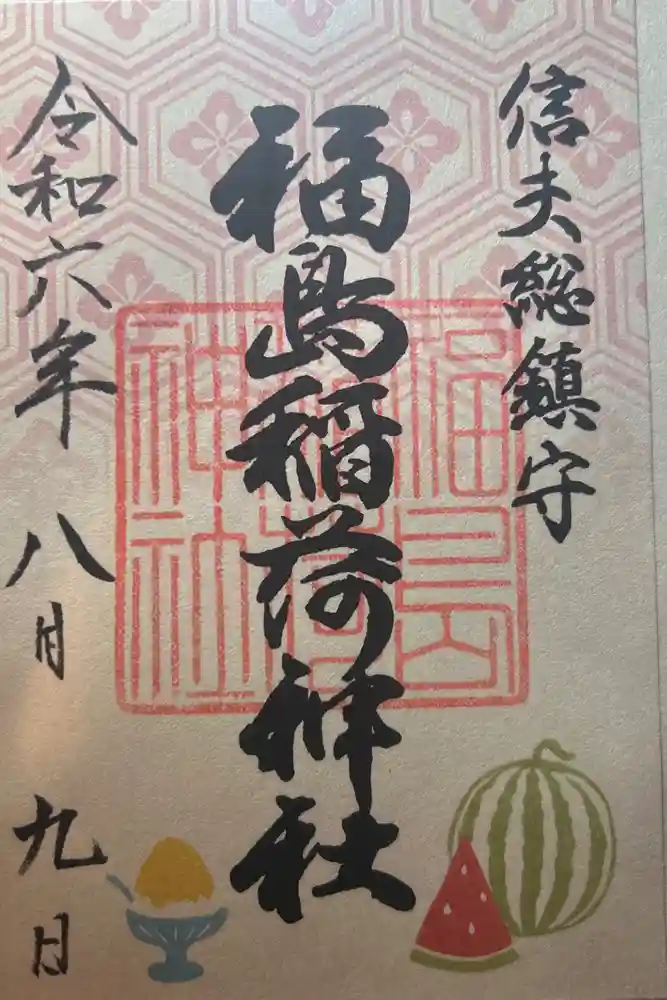 信夫総鎮守
福島稲荷神社
福島稲荷神社
令和六年 八月 九日